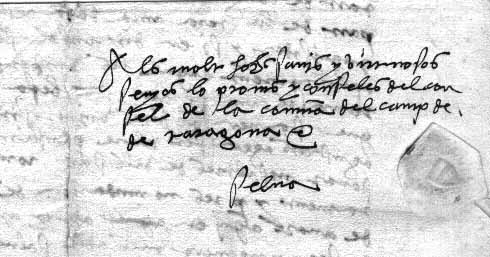 Als molt hobs savis y virtuosos
senyos lo promis y conseles del con
sel de la comuna del camp de
de taragona
selua